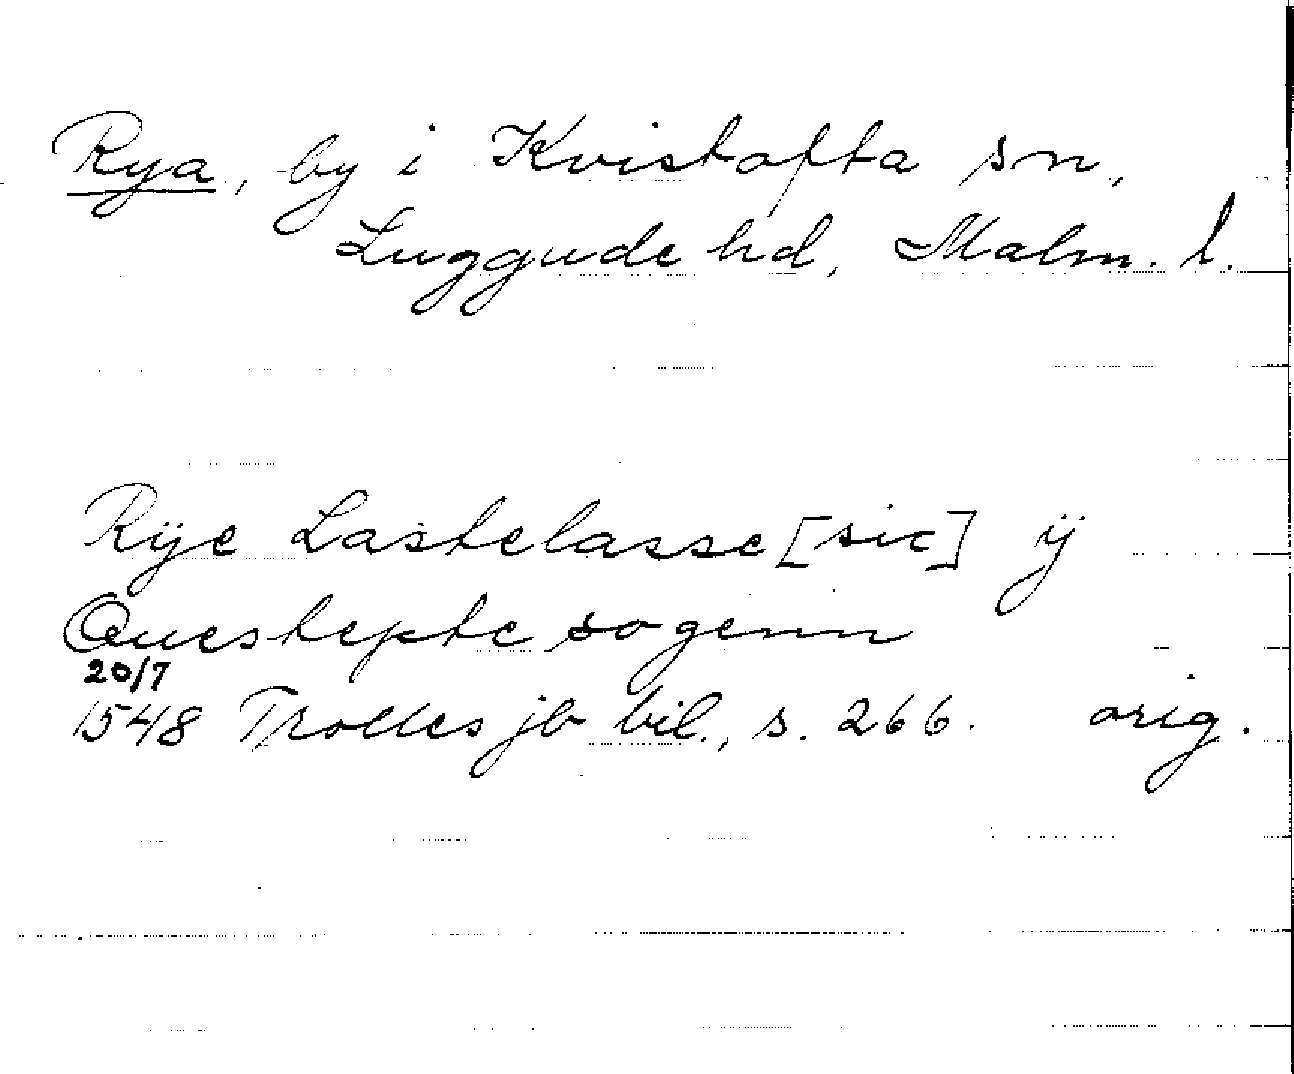 Rya, by i Kvistofta sn,
Luggude hd, Malm. l.
Rÿe Lastelasse [sic] ÿ
Questepte sogenn
20/7
1548 Trolles jb bil., s. 266. orig.